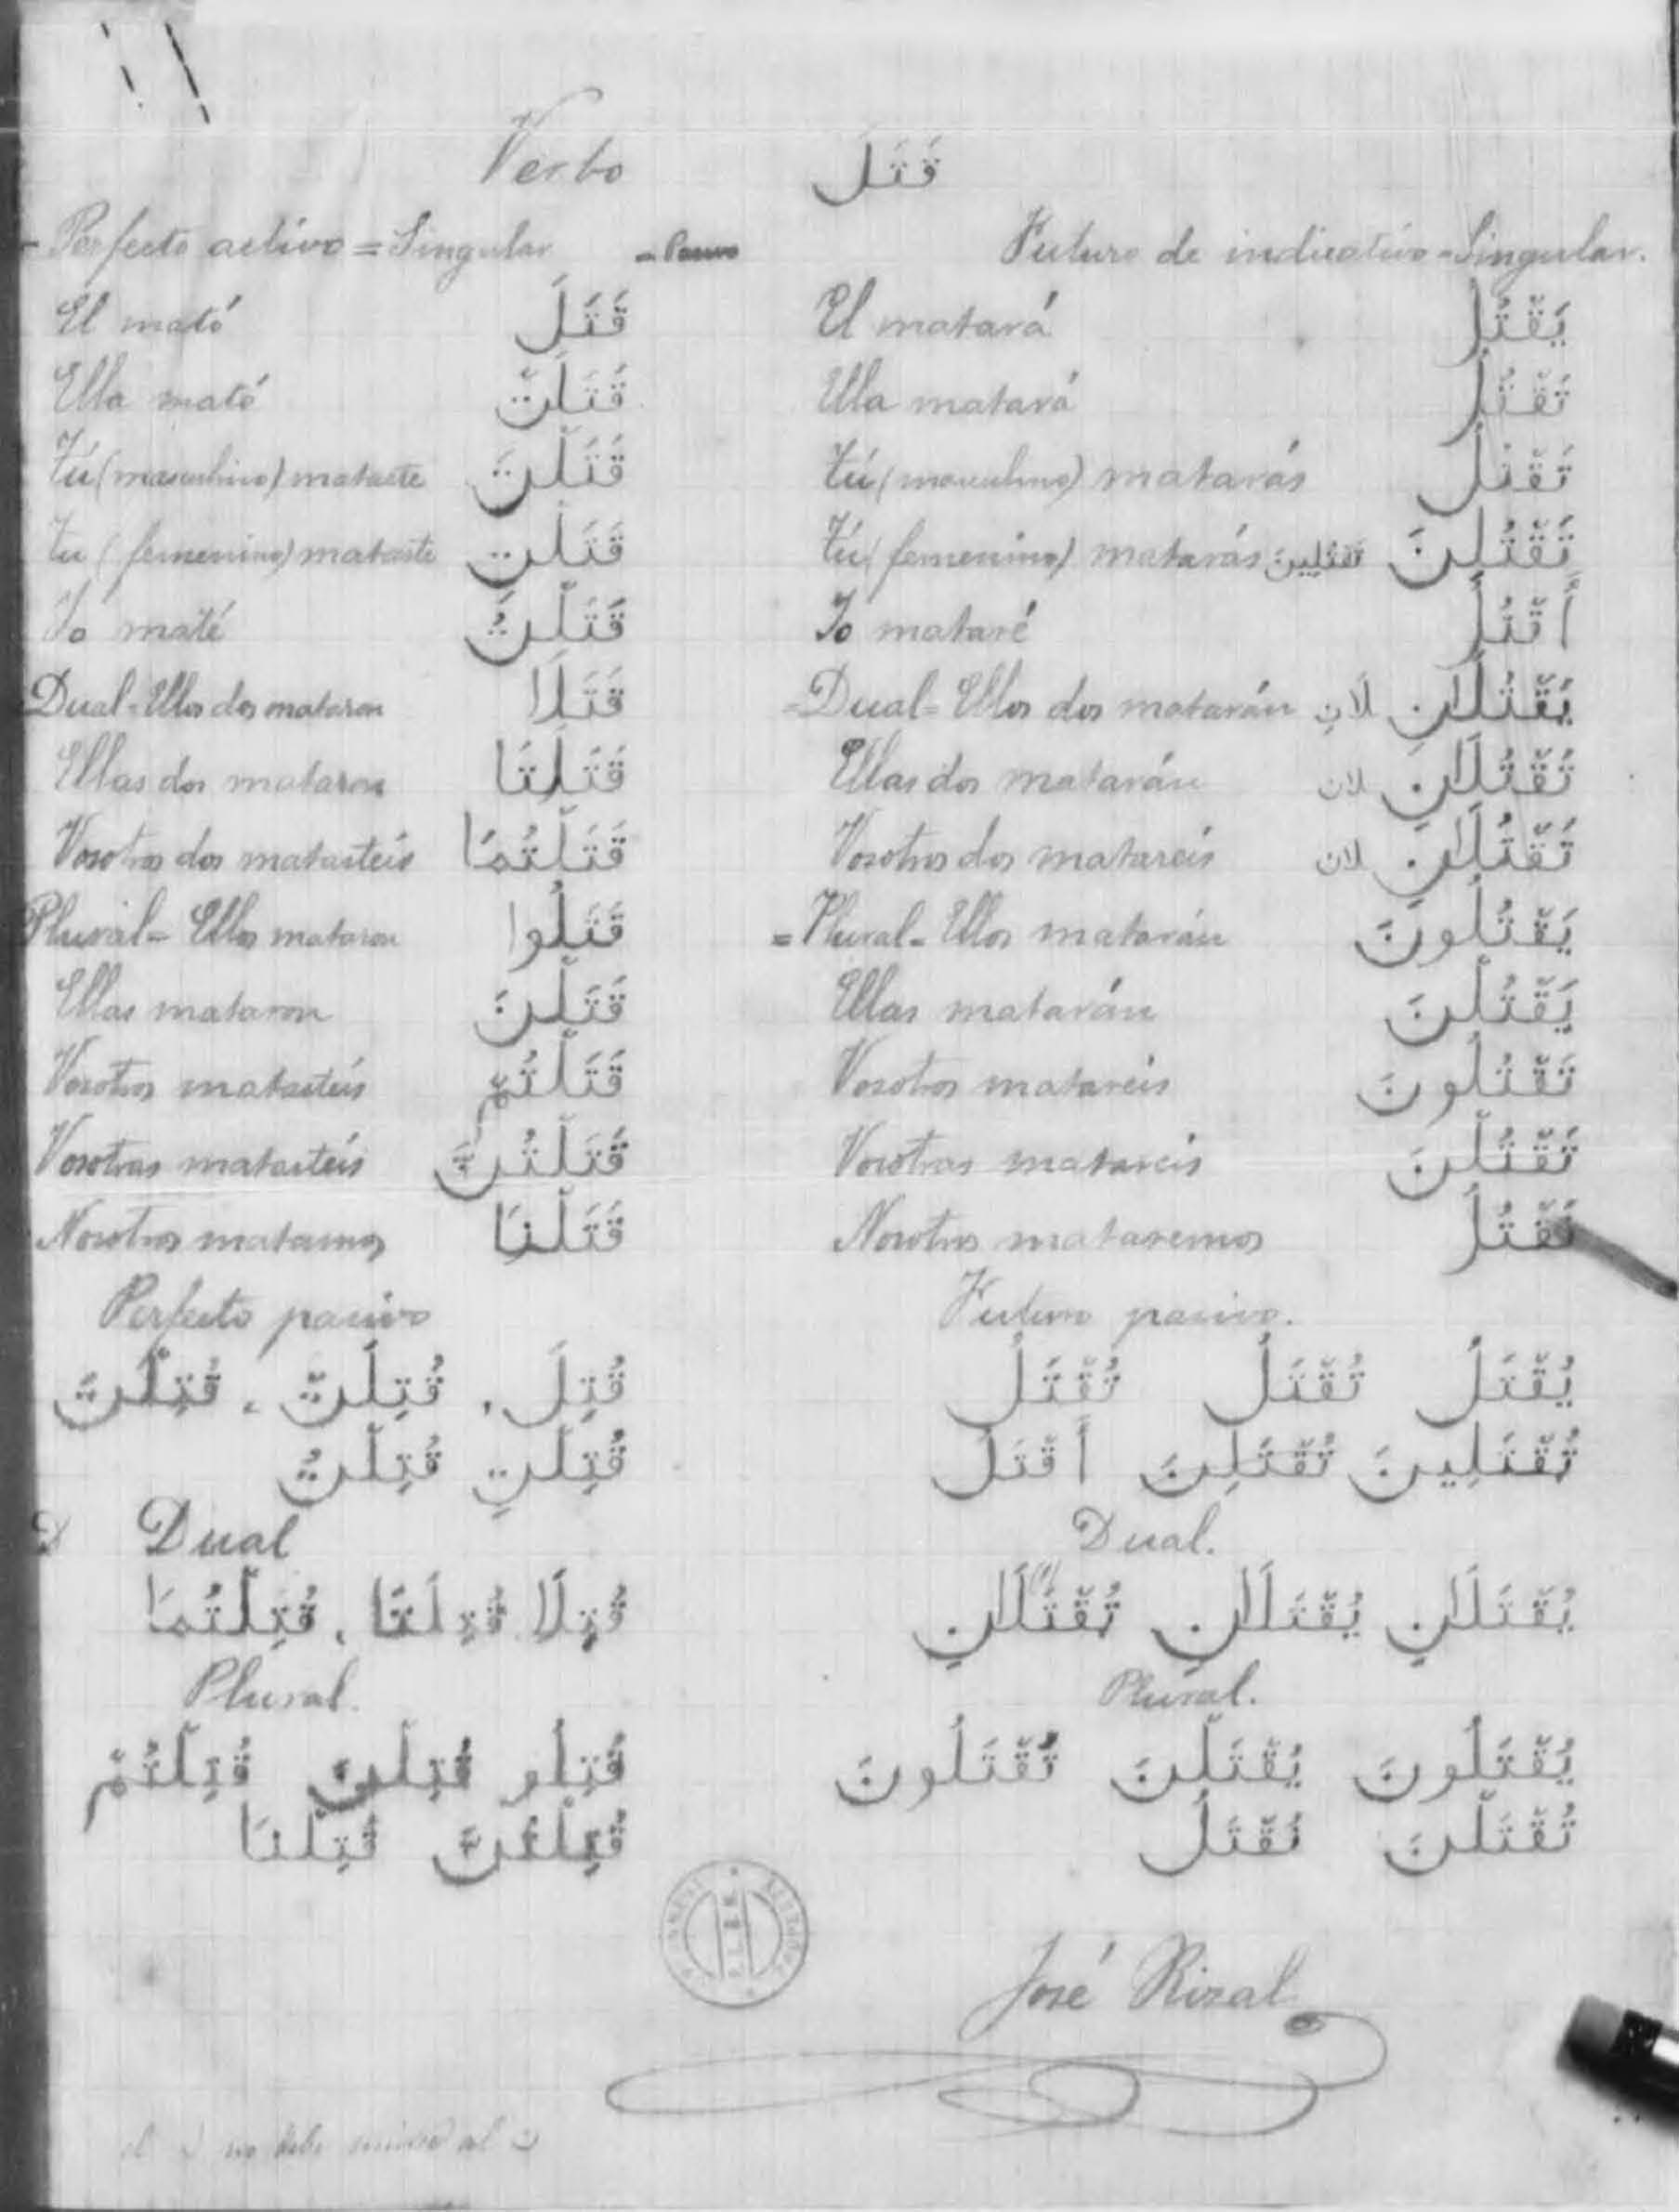 Verbo قَتَلَ
- Perfecto activo = Singular - Pasivo
El mató قَتَلَ
Ella mató قَتَلَتْ
Tú (masculino) mataste قَتَلْتَ
Tu (femenino) mataste قَتَلْتِ
Yo maté قَتَلْتُ
Dual = Ellos dos mataron قَتَلَا
Ellas dos mataron قَتَلَتَا
Vosotros dos matasteis قَتَلْتُمَا
Plural - Ellos mataron قَتَلُوا
Ellas mataron قَتَلْنَ
Vosotros matasteis قَتَلْتُمْ
Vosotras matasteis قَتَلْتُنَّ
Nosotros matamos قَتَلْنَا
Perfecto pasivo
قُتِلَ . قُتِلَتْ . قُتِلْتَ
قُتِلْتِ قُتِلْتُ
Dual
قُتِلَا قُتِلَتَا . قُتِلْتُمَا
Plural.
قُتِلُو قُتِلْنَ قُتِلْتُمْ
قُتِلْتُنَّ قُتِلْنَا
Futuro de indicativo - Singular.
El matará يَقْتُلُ
Ella matará تَقْتُلُ
Tú (masculino) matarás تَقْتُلُ
Tú (femenino) matarás تقتلين تَقْتُلِنَ
Yo mataré أَقْتُلُ
= Dual = Ellos dos matarán لَانِ يَقْتُلَانِ
Ellas dos matarán لان تَقْتُلَانِ
Vosotros dos matareis لان تَقْتُلَانِ
= Plural - Ellos matarán يَقْتُلُونَ
Ellas matarán يَقْتُلْنَ
Vosotros matareis تَقْتُلُونَ
Vosotras matareis تَقْتُلْنَ
Nosotros mataremos نَقْتُلُ
Futuro pasivo.
يُقْتَلُ تُقْتَلُ تُقْتَلُ
تُقْتَلِينَ تُقْتَلِنَ أُقْتَلُ
Dual.
يُقْتَلَانِ يُقْتَلَانِ تُقْتَلَانِ
Plural.
يُقْتَلُونَ يُقْتَلْنَ تُقْتَلُونَ
تُقْتَلْنَ نُقْتَلُ
José Rizal
no debe unirse al